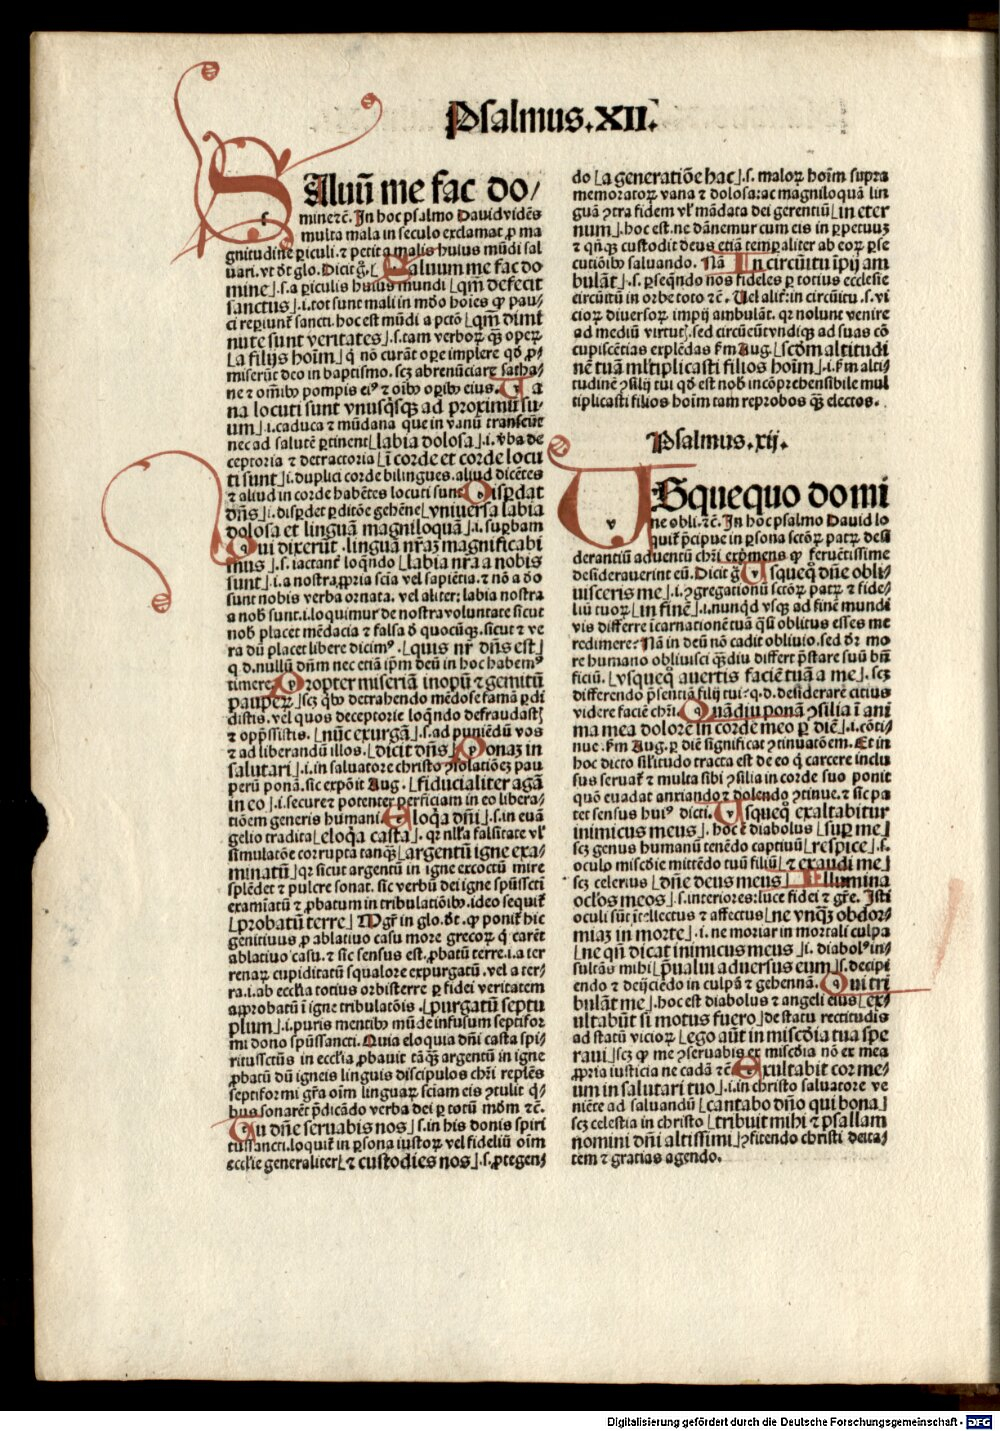 Psalmus.XII.
SAluū me fac do/
mine ꝛc̄. In hoc psalmo Dauid vidēs
multa mala in seculo exclamat ꝓ ma
gnitudine ꝑiculi. ⁊ petit a malis huius mūdi sal
uari. vt dt̄ glo. Dicit gͦ. ⌊Saluum me fac do
mine⌋.s. a ꝑiculis huius mundi ⌊qm̄ defecit
sanctus⌋.i. tot sunt mali in mōo hoīes ꝙ pau/
ci reꝑiunt̄ sancti. hoc est mūdi a pctō ⌊qm̄ dimi
nute sunt veritates⌋.s. tam verboꝝ qꝫ opeꝝ
⌊a filijs hoīm⌋ q̇ nō curāt oꝑe implere qḋ ꝓ/
miserūt deo in baptismo. scꝫ abrenūciare satha/
ne ⁊ om̄ibꝰ pompis eiꝰ ⁊ oībꝰ oꝑibꝰ eius. Ua
na locuti sunt vnusq̇sqꝫ ad proximū su/
um⌋.i. caduca ⁊ mūdana que in vanū transeūt
nec ad salutē ꝑtinent ⌊labia dolosa⌋.i. v̄ba de
ceptoria ⁊ detractoria ⌊ī corde et corde locu
ti sunt⌋.i. duplici corde bilingues. aliud dicētes
⁊ aliud in corde habētes locuti sunt Disꝑdat
dn̄s⌋.i. disꝑdet ꝑditōe gehēne ⌊vniuersa labia
dolosa et linguā magniloquā⌋.i. suꝑbam
Qui dixerūt. linguā nr̄aꝫ magnificabi
mus⌋.s. iactant̄ loqn̄do ⌊labia nr̄a a nobis
sunt⌋.i. a nostra ꝓpria scīa vel sapiētia. ⁊ nō a do
sunt nobis verba ornata. vel aliter: labia nostra
a nob̄ sunt. i. loquimur de nostra voluntate sicut
nob̄ placet mēdacia ⁊ falsa d̄ quocūqꝫ. sicut ⁊ ve
ra dū placet libere dicimꝰ. ⌊quis nr̄ dn̄s est⌋
q. d. nullū dn̄m nec etiā ip̄m deū in hoc habemꝰ
timere. Propter miseriā inopū ⁊ gemitū
pauꝑeꝝ⌋ scꝫ q̇bꝰ detrahendo mēdose famā ꝑdi
distis. vel quos deceptorie loqn̄do defraudastꝭ
⁊ opp̄ssistis. ⌊nūc exurgā⌋.s. ad puniēdū vos
⁊ ad liberandū illos. ⌊dicit dn̄s⌋ Ponaꝫ in
salutari⌋.i. in saluatore christo ꝯsolatiōeꝫ pau
perū ponā. sic expōit Aug. ⌊fiducialiter agā
in eo⌋.i. secure ⁊ potenter perficiam in eo libera/
tiōem generis humani. Eloq̇a dn̄i⌋.s. in euā
gelio tradita ⌊eloq̇a casta⌋. qꝛ nlla falsitate vl̓
simulatōe corrupta tanqꝫ ⌊argentū igne exa/
minatū⌋ qꝛ sicut argentū in igne excoctū mire
splēdet ⁊ pulcre sonat. sic verbū dei igne sp̄ūssctī
examīatū ⁊ ꝓbatum in tribulatiōibꝰ. ideo sequit̄
⌊probatū terre⌋ Mgr̄ in glo. dt̄. ꝙ ponit̄ hic
genitiuus ꝓ ablatiuo casu more grecoꝝ q̇ carēt
ablatiuo casu. ⁊ sic sensus est. ꝓbatū terre. i. a ter
renaꝝ cupiditatū squalore expurgatū. vel a ter/
ra. i. ab eccl̓ia totius orbis terre ꝑ fidei veritatem
approbatū ī igne tribulatōis. ⌊purgatū septu
plum⌋.i. puris mentibꝰ mūde infusum septifor
mi dono sp̄ūssancti. Quia eloquia dn̄i casta spi/
ritussctūs in eccl̓ia ꝓbauit tāqꝫ argentū in igne
ꝓbatū dū igneis linguis discipulos chr̄i replēs
septiformi gr̄a oīm linguaꝝ sciam eis ꝯtulit q̇/
bus sonarēt p̄dicādo verba dei ꝑ totū mōm ꝛc̄.
Tu dn̄e seruabis nos⌋.s. in his donis spiri
tussancti. loquit̄ in ꝑsona iustoꝝ vel fideliū oīm
eccl̓ie generaliter ⌊⁊ custodies nos⌋.s. ꝓtegen/
do ⌊a generatiōe hac⌋.s. maloꝝ hoīm supra
memoratoꝝ vana ⁊ dolosa: ac magniloquā lin
guā ꝯtra fidem vl̓ mādata dei gerentiū ⌊in eter
num⌋. hoc est. ne dānemur cum eis in ꝑpetuuꝫ
⁊ qn̄qꝫ custodit deus etiā temꝑaliter ab eoꝝ ꝑse
cutiōibꝰ saluando. Nā In circūitu īpij am
bulāt⌋.s. ꝑseqn̄do nos fideles ꝑ totius ecclesie
circūitū in orbe toto ꝛc̄. Uel alit̄: in circūitu. s. vi
cioꝝ diuersoꝝ impij ambulāt. qꝛ nolunt venire
ad mediū virtutꝭ. sed circūeūt vndiqꝫ ad suas cō
cupiscētias explēdas ẜm Aug. ⌊scdm altitudi
nē tuā ml̓tiplicasti filios hoīm⌋.i. ẜm alti/
tudinē ꝯsilij tui qḋ est nob̄ incōprehensibile mul
tiplicasti filios hoīm tam reprobos qꝫ electos.
Psalmus.xij.
USquequo domi
ne obli. ꝛc̄. In hoc psalmo Dauid lo
quit̄ p̄cipue in ꝑsona sctōꝝ patꝝ desi
derantiū aduentū chr̄i exp̄mens ꝙ feruētissime
desiderauerint eū. Dicit gͦ Usqueqͦ dn̄e obli/
uisceris me⌋.i. ꝯgregationū sctōꝝ patꝝ ⁊ fide/
liū tuoꝝ ⌊in finē⌋.i. nunqḋ vsqꝫ ad finē mundi
vis differre īcarnationē tuā qͣsi oblitus esses me
redimere: Nā in deū nō cadit obliuio. sed dr̄ mo
re humano obliuisci qꝫdiu differt p̄stare suū bn̄
ficiū. ⌊vsqueqͦ auertis faciē tuā a me⌋. scꝫ
differendo p̄sentiā filij tui: q. d. desiderarē citius
videre faciē chr̄i. Quādiu ponā ꝯsilia ī ani
ma mea dolorē in corde meo ꝑ diē⌋.i. cōti/
nue. ẜm Aug. ꝑ diē significat ꝯtinuatōem. Et in
hoc dicto sil̓itudo tracta est de eo q̇ carcere inclu
sus seruat̄ ⁊ multa sibi ꝯsilia in corde suo ponit
quō euadat anxiando ⁊ dolendo ꝯtinue. ⁊ sic pa
tet sensus huiꝰ dicti. Usqueqͦ exaltabitur
inimicus meus⌋. hoc ē diabolus ⌊suꝑ me⌋
scꝫ genus humanū tenēdo captiuū ⌊respice⌋.s.
oculo miscd̓ie mittēdo tuū filiū ⌊⁊ exaudi me⌋
scꝫ celerius ⌊dn̄e deus meus⌋ Illumina
ocl̓os meos⌋.s. interiores: luce fidei ⁊ gr̄e. Isti
oculi sūt ītellectus ⁊ affectus ⌊ne vnqꝫ obdor/
miaꝫ in morte⌋.i. ne moriar in mortali culpa
⌊ne qn̄ dicat inimicus meus⌋ i. diabolꝰ in/
sultās mihi ⌊p̄ualui aduersus eum⌋.s. decipi
endo ⁊ deijciēdo in culpā ⁊ gehennā. Qui tri
bulāt me⌋. hoc est diabolus ⁊ angeli eius ⌊ex/
ultabūt si motus fuero⌋ de statu rectitudis
ad statū vicioꝝ ⌊Ego aūt in miscd̓ia tua spe
raui⌋ scꝫ ꝙ me ꝯseruabis ex miscd̓ia nō ex mea
ꝓpria iusticia ne cadā ꝛc̄ Exultabit cor me/
um in salutari tuo⌋.i. in christo saluatore ve
niēte ad saluandū ⌊cantabo dn̄o qui bona⌋
scꝫ celestia in christo ⌊tribuit mihi ⁊ psallam
nomini dn̄i altissimi⌋ ꝯfitendo christi deita/
tem ⁊ gratias agendo.
Digitalisierung gefördert durch die Deutsche Forschungsgemeinschaft - DFG